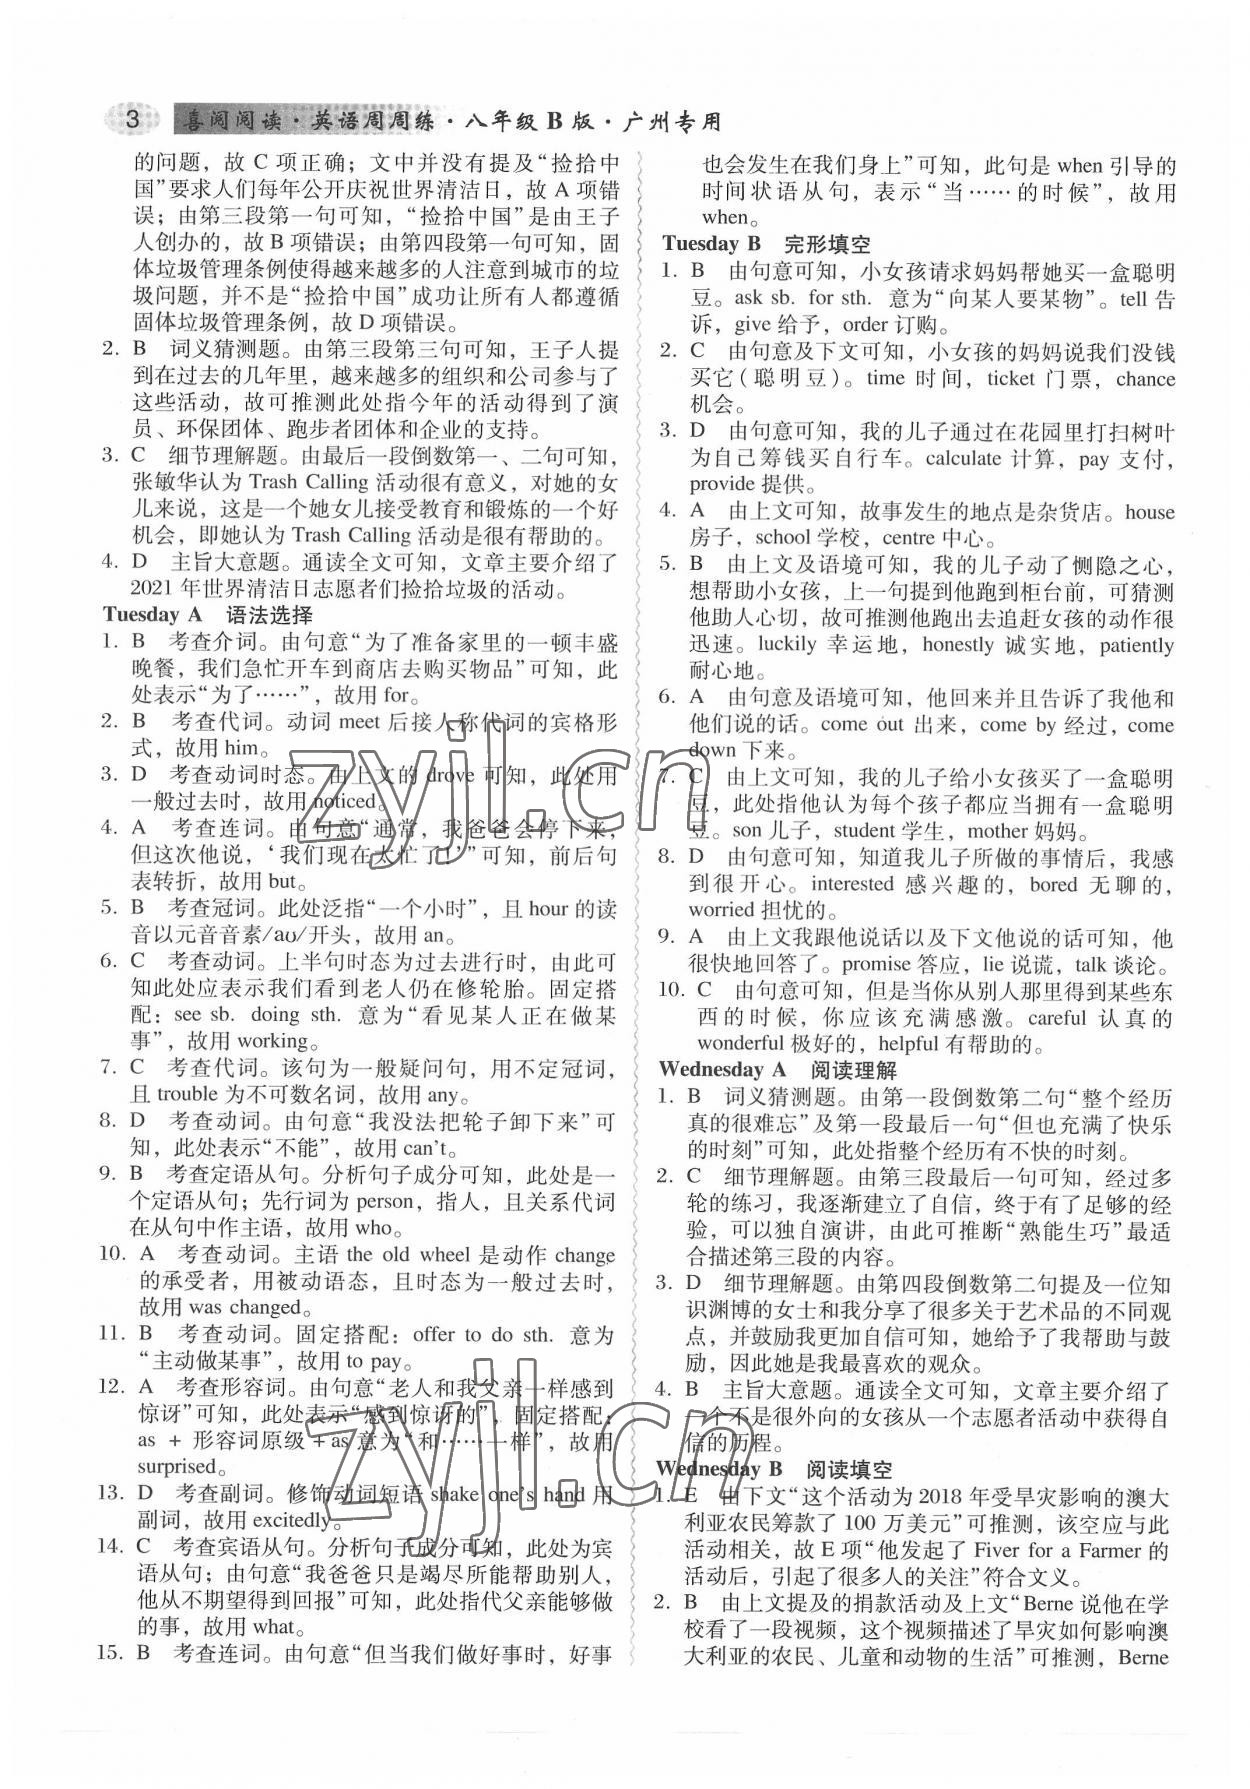 3 喜阅阅读·英语周周练·八年级 B 版·广州专用
的问题，故 C 项正确；文中并没有提及“捡拾中
国”要求人们每年公开庆祝世界清洁日，故 A 项错
误；由第三段第一句可知，“捡拾中国”是由王子
人创办的，故 B 项错误；由第四段第一句可知，固
体垃圾管理条例使得越来越多的人注意到城市的垃
圾问题，并不是“捡拾中国”成功让所有人都遵循
固体垃圾管理条例，故 D 项错误。
2. B 词义猜测题。由第三段第三句可知，王子人提
到在过去的几年里，越来越多的组织和公司参与了
这些活动，故可推测此处指今年的活动得到了演
员、环保团体、跑步者团体和企业的支持。
3. C 细节理解题。由最后一段倒数第一、二句可知，
张敏华认为 Trash Calling 活动很有意义，对她的女
儿来说，这是一个她女儿接受教育和锻炼的一个好
机会，即她认为 Trash Calling 活动是很有帮助的。
4. D 主旨大意题。通读全文可知，文章主要介绍了
2021 年世界清洁日志愿者们捡拾垃圾的活动。
Tuesday A 语法选择
1. B 考查介词。由句意“为了准备家里的一顿丰盛
晚餐，我们急忙开车到商店去购买物品”可知，此
处表示“为了……”，故用 for。
2. B 考查代词。动词 meet 后接人称代词的宾格形
式，故用 him。
3. D 考查动词时态。由上文的 drove 可知，此处用
一般过去时，故用 noticed。
4. A 考查连词。由句意“通常，我爸爸会停下来，
但这次他说，‘我们现在太忙了！’”可知，前后句
表转折，故用 but。
5. B 考查冠词。此处泛指“一个小时”，且 hour 的读
音以元音音素/aʊ/开头，故用 an。
6. C 考查动词。上半句时态为过去进行时，由此可
知此处应表示我们看到老人仍在修轮胎。固定搭
配：see sb. doing sth. 意为“看见某人正在做某
事”，故用 working。
7. C 考查代词。该句为一般疑问句，用不定冠词，
且 trouble 为不可数名词，故用 any。
8. D 考查动词。由句意“我没法把轮子卸下来”可
知，此处表示“不能”，故用 can't。
9. B 考查定语从句。分析句子成分可知，此处是一
个定语从句；先行词为 person，指人，且关系代词
在从句中作主语，故用 who。
10. A 考查动词。主语 the old wheel 是动作 change
的承受者，用被动语态，且时态为一般过去时，
故用 was changed。
11. B 考查动词。固定搭配：offer to do sth. 意为
“主动做某事”，故用 to pay。
12. A 考查形容词。由句意“老人和我父亲一样感到
惊讶”可知，此处表示“感到惊讶的”，固定搭配：
as + 形容词原级 + as 意为“和……一样”，故用
surprised。
13. D 考查副词。修饰动词短语 shake one's hand 用
副词，故用 excitedly。
14. C 考查宾语从句。分析句子成分可知，此处为宾
语从句；由句意“我爸爸只是竭尽所能帮助别人，
他从不期望得到回报”可知，此处指代父亲能够做
的事，故用 what。
15. B 考查连词。由句意“但当我们做好事时，好事
也会发生在我们身上”可知，此句是 when 引导的
时间状语从句，表示“当……的时候”，故用
when。
Tuesday B 完形填空
1. B 由句意可知，小女孩请求妈妈帮她买一盒聪明
豆。ask sb. for sth. 意为“向某人要某物”。tell 告
诉，give 给予，order 订购。
2. C 由句意及下文可知，小女孩的妈妈说我们没钱
买它（聪明豆）。time 时间，ticket 门票，chance
机会。
3. D 由句意可知，我的儿子通过在花园里打扫树叶
为自己筹钱买自行车。calculate 计算，pay 支付，
provide 提供。
4. A 由上文可知，故事发生的地点是杂货店。house
房子，school 学校，centre 中心。
5. B 由上文及语境可知，我的儿子动了恻隐之心，
想帮助小女孩，上一句提到他跑到柜台前，可猜测
他助人心切，故可推测他跑出去追赶女孩的动作很
迅速。luckily 幸运地，honestly 诚实地，patiently
耐心地。
6. A 由句意及语境可知，他回来并且告诉了我他和
他们说的话。come out 出来，come by 经过，come
down 下来。
7. C 由上文可知，我的儿子给小女孩买了一盒聪明
豆，此处指他认为每个孩子都应当拥有一盒聪明
豆。son 儿子，student 学生，mother 妈妈。
8. D 由句意可知，知道我儿子所做的事情后，我感
到很开心。interested 感兴趣的，bored 无聊的，
worried 担忧的。
9. A 由上文我跟他说话以及下文他说的话可知，他
很快地回答了。promise 答应，lie 说谎，talk 谈论。
10. C 由句意可知，但是当你从别人那里得到某些东
西的时候，你应该充满感激。careful 认真的
wonderful 极好的，helpful 有帮助的。
Wednesday A 阅读理解
1. B 词义猜测题。由第一段倒数第二句“整个经历
真的很难忘”及第一段最后一句“但也充满了快乐
的时刻”可知，此处指整个经历有不快的时刻。
2. C 细节理解题。由第三段最后一句可知，经过多
轮的练习，我逐渐建立了自信，终于有了足够的经
验，可以独自演讲，由此可推断“熟能生巧”最适
合描述第三段的内容。
3. D 细节理解题。由第四段倒数第二句提及一位知
识渊博的女士和我分享了很多关于艺术品的不同观
点，并鼓励我更加自信可知，她给予了我帮助与鼓
励，因此她是我最喜欢的观众。
4. B 主旨大意题。通读全文可知，文章主要介绍了
一个不是很外向的女孩从一个志愿者活动中获得自
信的历程。
Wednesday B 阅读填空
1. E 由下文“这个活动为 2018 年受旱灾影响的澳大
利亚农民筹款了 100 万美元”可推测，该空应与此
活动相关，故 E 项“他发起了 Fiver for a Farmer 的
活动后，引起了很多人的关注”符合文义。
2. B 由上文提及的捐款活动及上文“Berne 说他在学
校看了一段视频，这个视频描述了旱灾如何影响澳
大利亚的农民、儿童和动物的生活”可推测，Berne
zyjl.cn
zyjl.cn